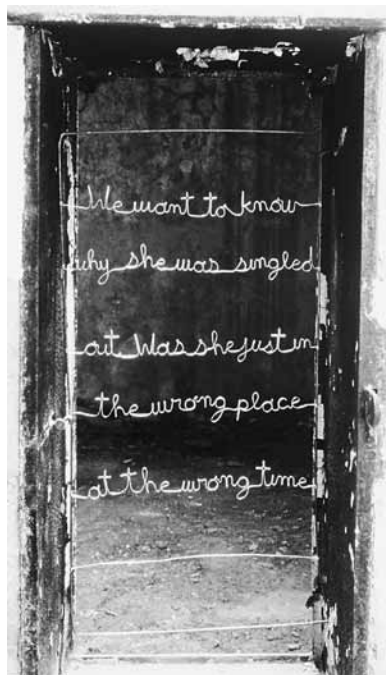 We want to know
why she was singled
out. Was she just in
the wrong place
at the wrong time